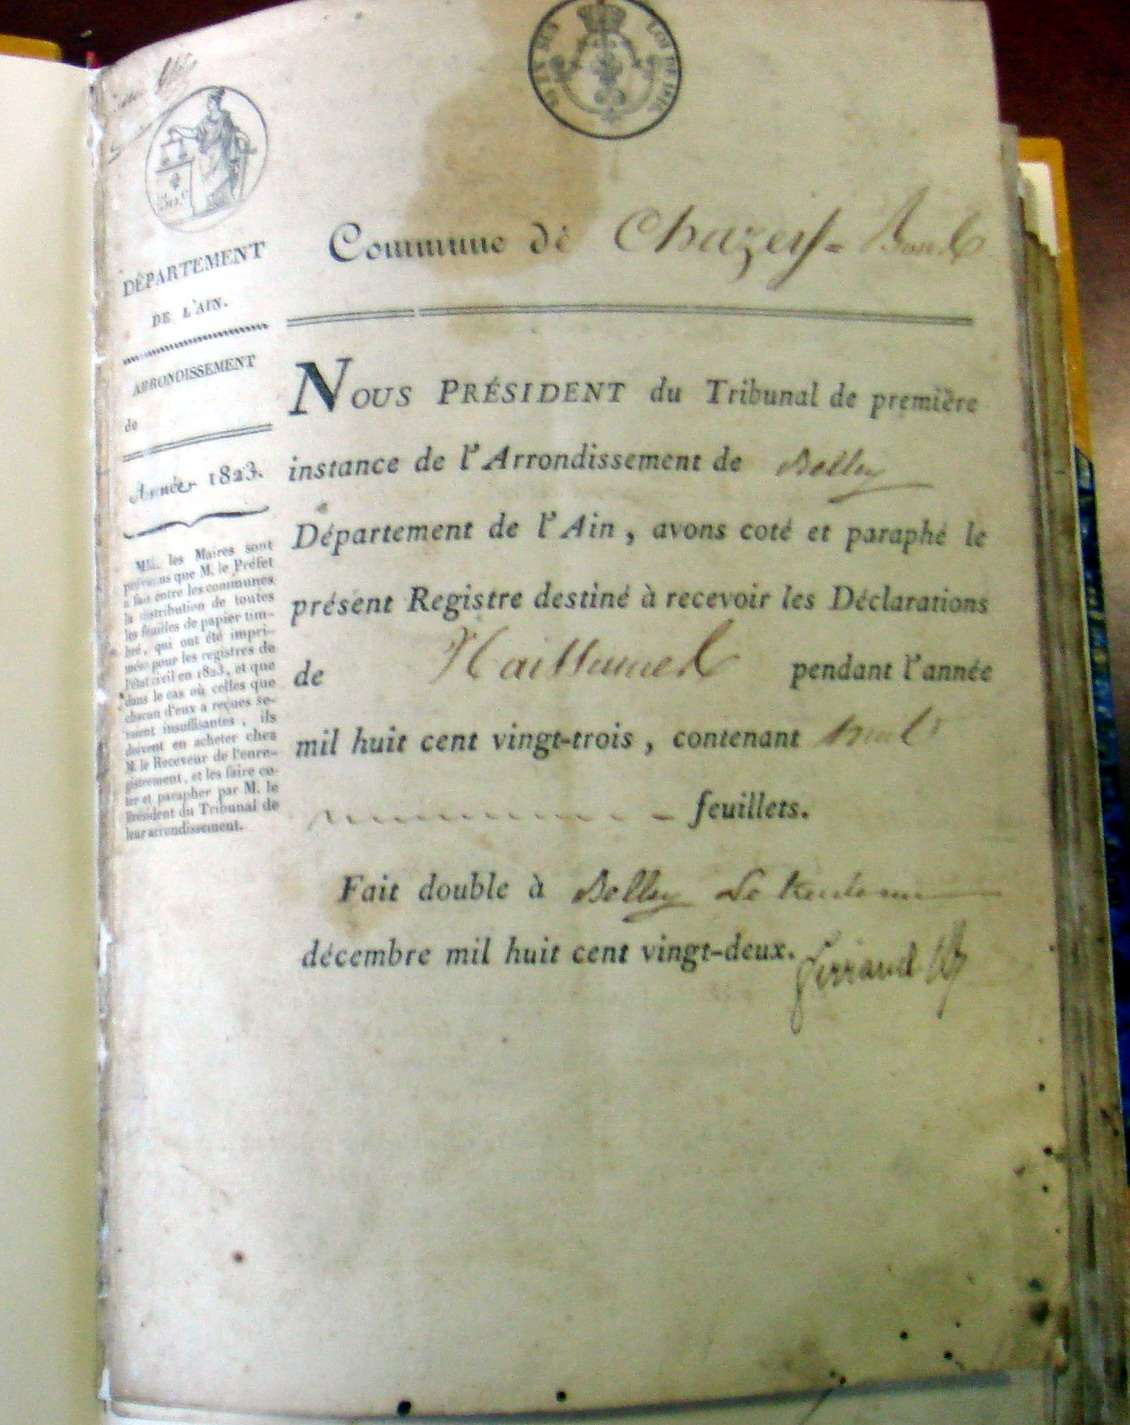 Commune de Chazey=Bons
DÉPARTEMENT
DE L'AIN.
ARRONDISSEMENT
de
Année 1823.
MM. les Maires sont
prévenus que M. le Préfet
a fait entre les communes
la distribution de toutes
les feuilles de papier tim-
bré, qui ont été impri-
mées pour les registres de
l'état civil en 1823, et que
dans le cas où celles que
chacun d'eux a reçues se-
raient insuffisantes, ils
doivent en acheter chez
M. le Receveur de l'enre-
gistrement, et les faire co-
ter et parapher par M. le
Président du Tribunal de
leur arrondissement.
NOUS PRÉSIDENT du Tribunal de première
instance de l'Arrondissement de Belley
Département de l'Ain, avons coté et paraphé le
présent Registre destiné à recevoir les Déclarations
de Naissances pendant l'année
mil huit cent vingt-trois, contenant huit
feuillets.
Fait double à Belley le trente un
décembre mil huit cent vingt-deux.